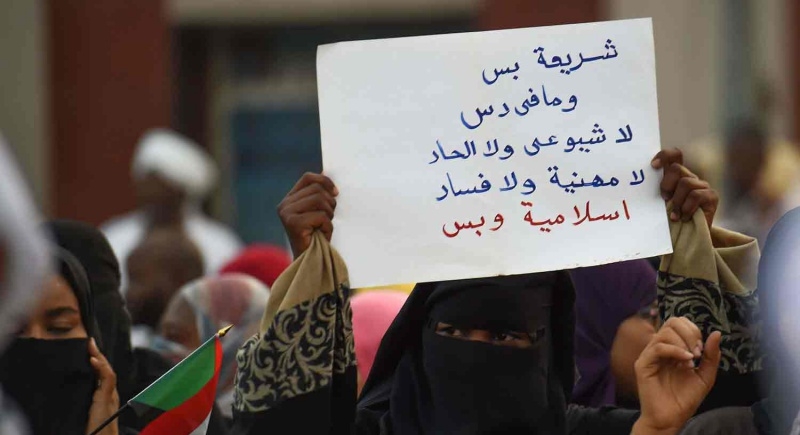 شريعة بس
ومافى دس
لا شيوعى ولا الحاد
لا مهنية ولا فساد
اسلامية وبس